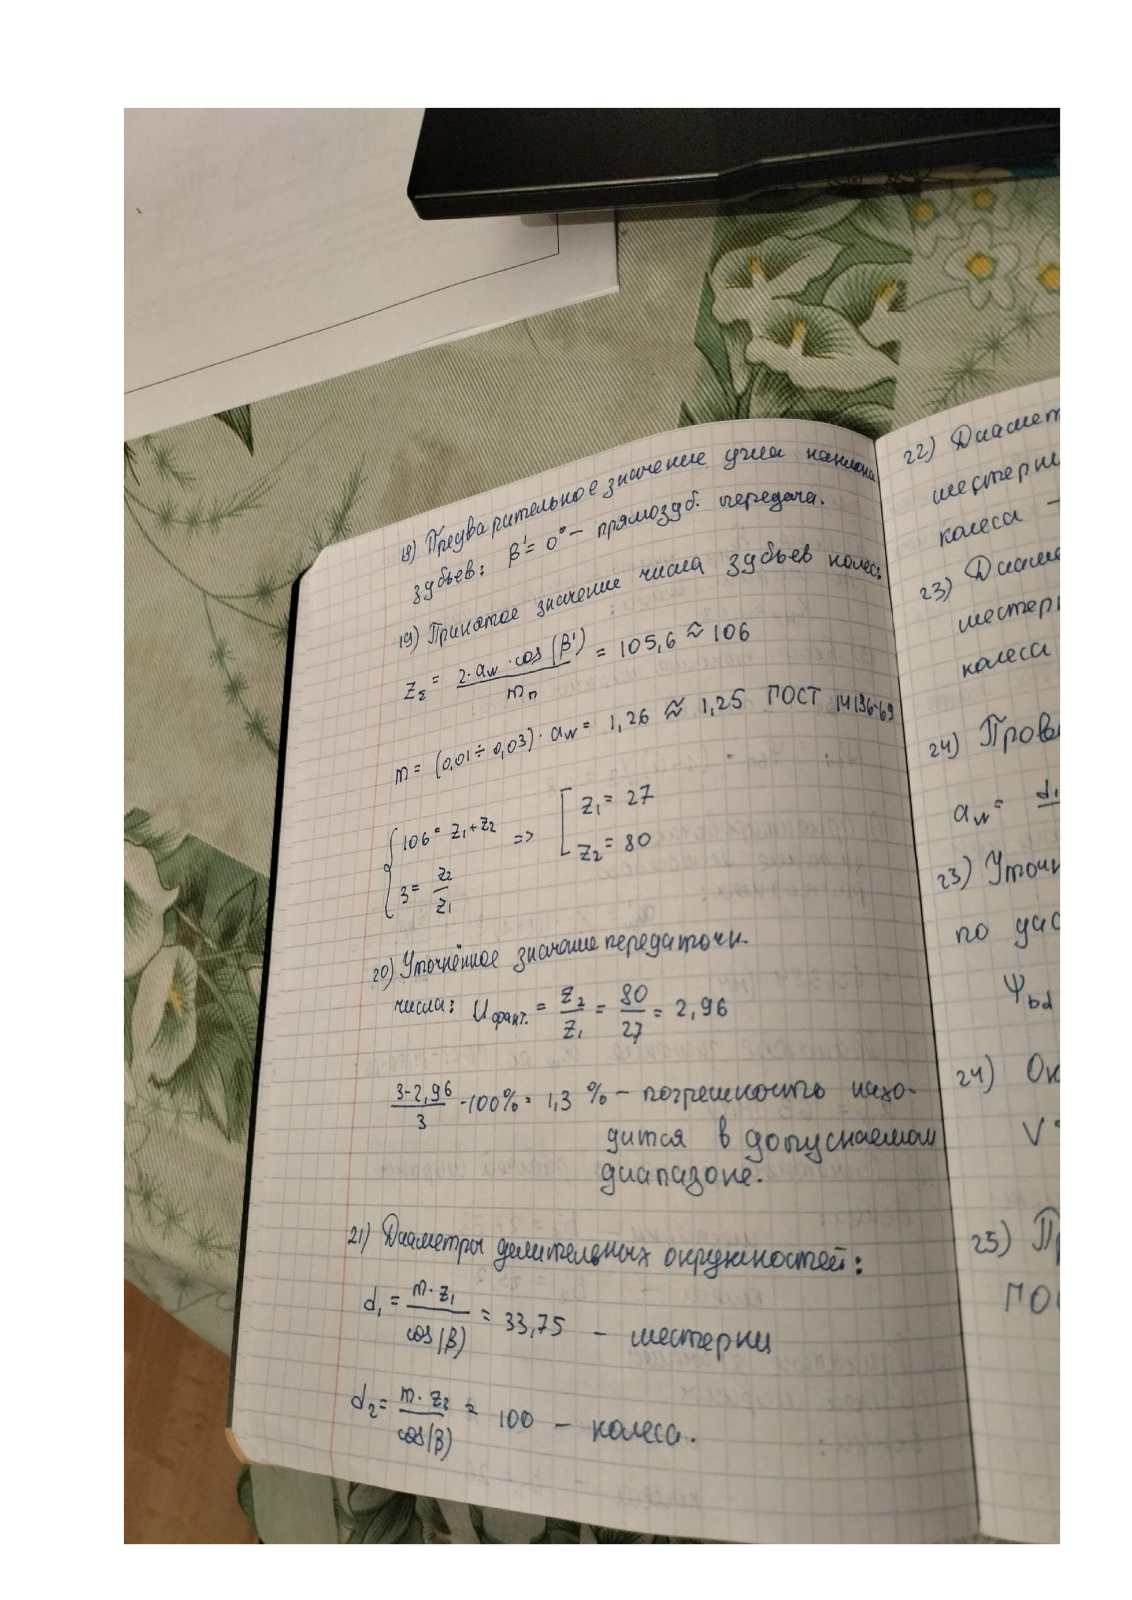 18) Предварительное значение угла наклона
зубьев: β' = 0° – прямозуб. передача.
19) Принятое значение числа зубьев колес:
z_Σ = (2·a_w·cos(β'))/m_n = 105,6 ≈ 106
m = (0,01 ÷ 0,03)·a_w = 1,26 ≈ 1,25 ГОСТ 14136-69
{ 106 = z₁+z₂ => [ z₁ = 27
3 = z₂/z₁ z₂ = 80
20) Уточнённое значение передаточн.
числа: U факт. = z₂/z₁ = 80/27 = 2,96
(3-2,96)/3 ·100% = 1,3 % – погрешность нахо-
дится в допускаемом
диапазоне.
21) Диаметры делительных окружностей:
d₁ = (m·z₁)/cos(β) = 33,75 – шестерни
d₂ = (m·z₂)/cos(β) = 100 – колеса.
22) Диамет
шестерни
колеса –
23) Диаме
шестер
колеса
24) Прове
a_w = d₁
23) Уточн
по
Ψ_bd
24) Ок
V =
25) П
ГО